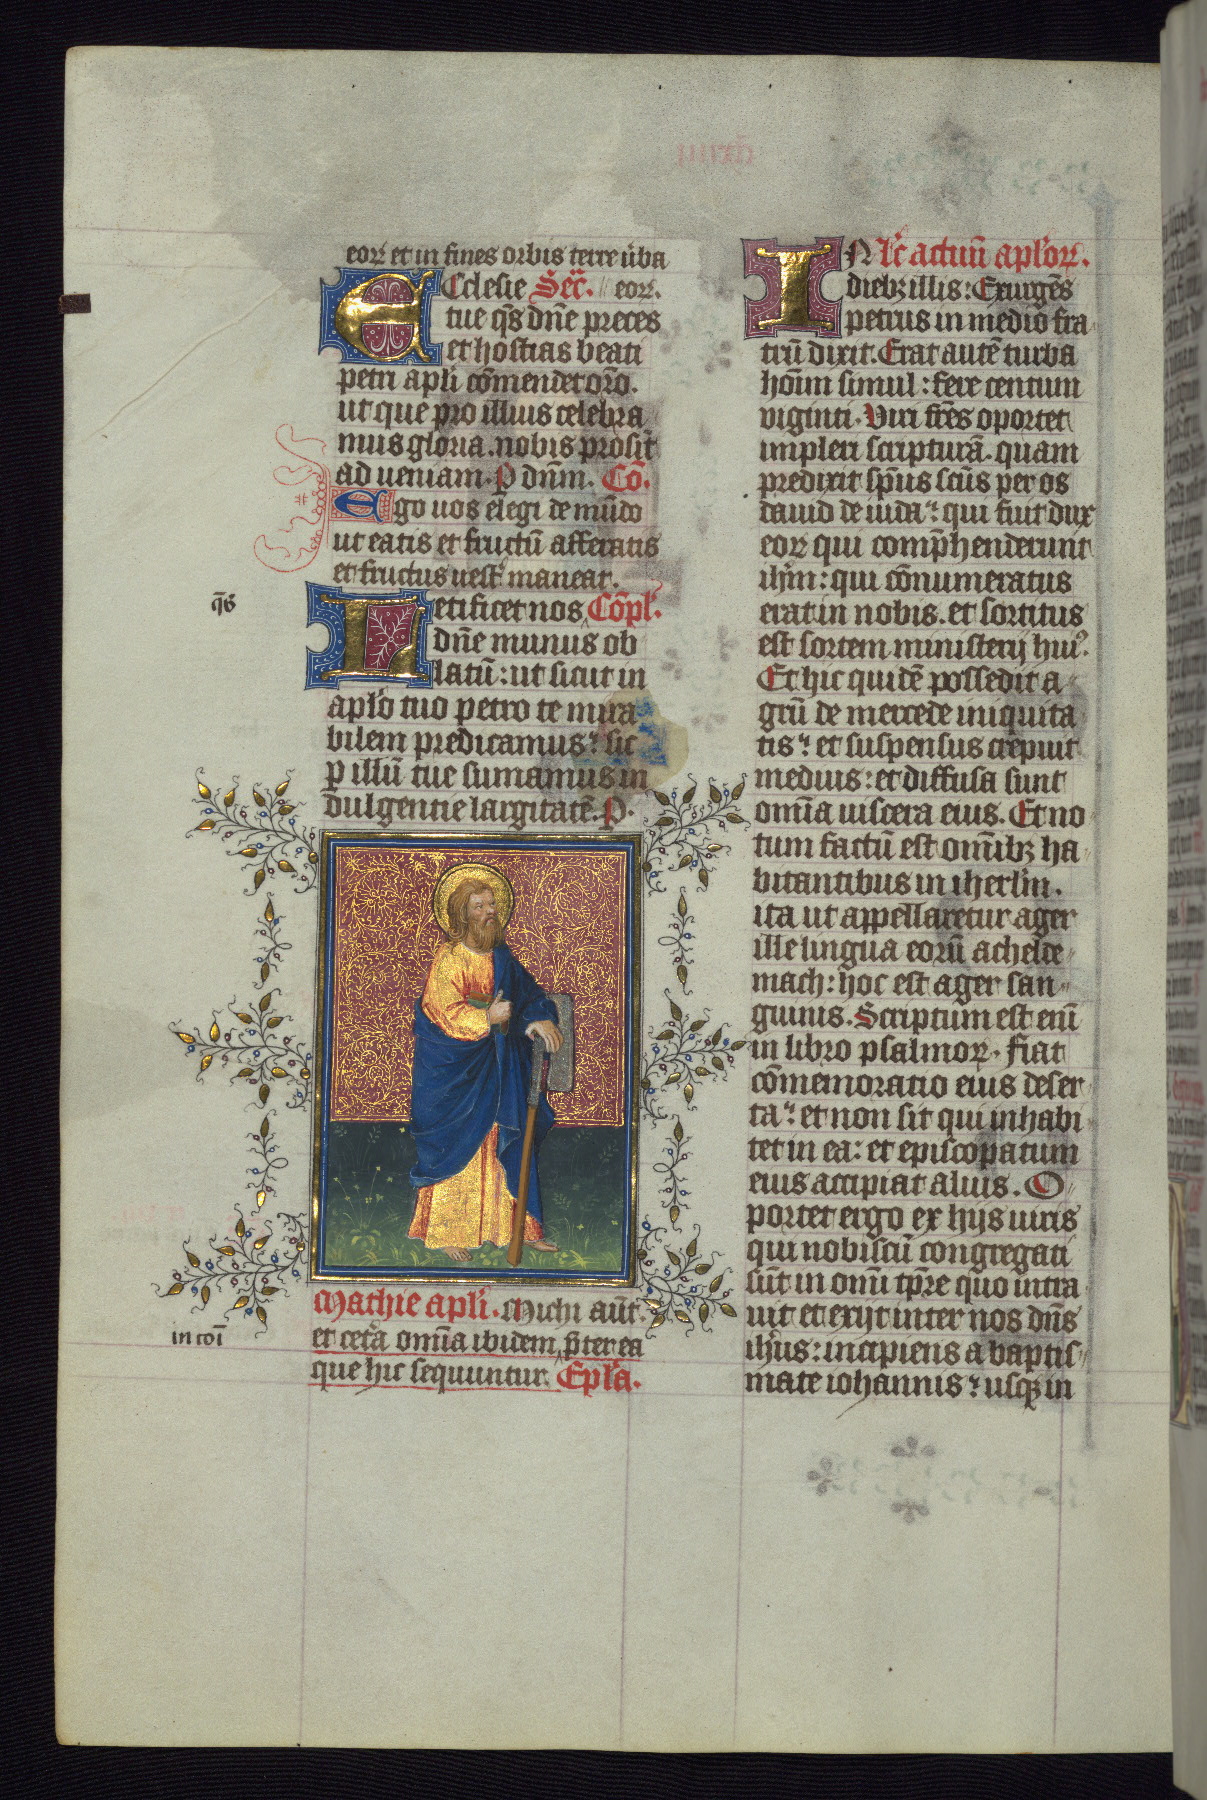 eoꝝ et in fines orbis terre ūba
Ecclesie Sec̄. eoꝝ.
tue qs̄ dn̄e preces
et hostias beati
petri apl̄i cōmendet orō.
ut que pro illius celebra
mus gloria. nobis prosit
ad ueniam. P dn̄m. Cō.
Ego uos elegi de mūdo
ut eatis et fructū afferatis
et fructus uestꝰ maneat.
qs̄
Letificet nos Cōpl̄.
dn̄e munus ob
latū: ut sicut in
apl̄o tuo petro te mira
bilem predicamus: sic
ꝑ illū tue sumamus in
dulgentie largitatē. P.
Mathie apl̄i. Michi aūt.
et cet̄a omīa ibidem p̄ter ea
in coī
que hic sequuntur. Epl̄a.
IN Lc̄ actuū apl̄oꝝ.
diebꝫ illis: Exurgēs
petrus in medio fra
trū dixit. Erat autē turba
hoīm simul: fere centum
viginti. Viri fr̄es oportet
impleri scripturā. quam
predixit sp̄us scūs per os
dauid de iuda: qui fuit dux
eoꝝ qui comp̄henderunt
ih̄m: qui cōnumeratus
erat in nobis. et sortitus
est sortem ministerij huiꝰ.
Et hic quidē possedit a
grū de mercede iniquita
tis: et suspensus crepuit
medius: et diffusa sunt
omīa uiscera eius. Et no
tum factū est omībꝫ ha
bitantibus in iherl̄m.
ita ut appellaretur ager
ille lingua eorū achelde
mach: hoc est ager san
guinis. Scriptum est enī
in libro psalmoꝝ. fiat
cōmemoratio eius deser
ta: et non sit qui inhabi
tet in ea: et episcopatum
eius accipiat alius. O
portet ergo ex hijs uiris
qui nobiscū congregati
sūt in omī tp̄re quo intra
uit et exijt inter nos dn̄s
ih̄us: incipiens a baptis
mate iohannis: usqꝫ in